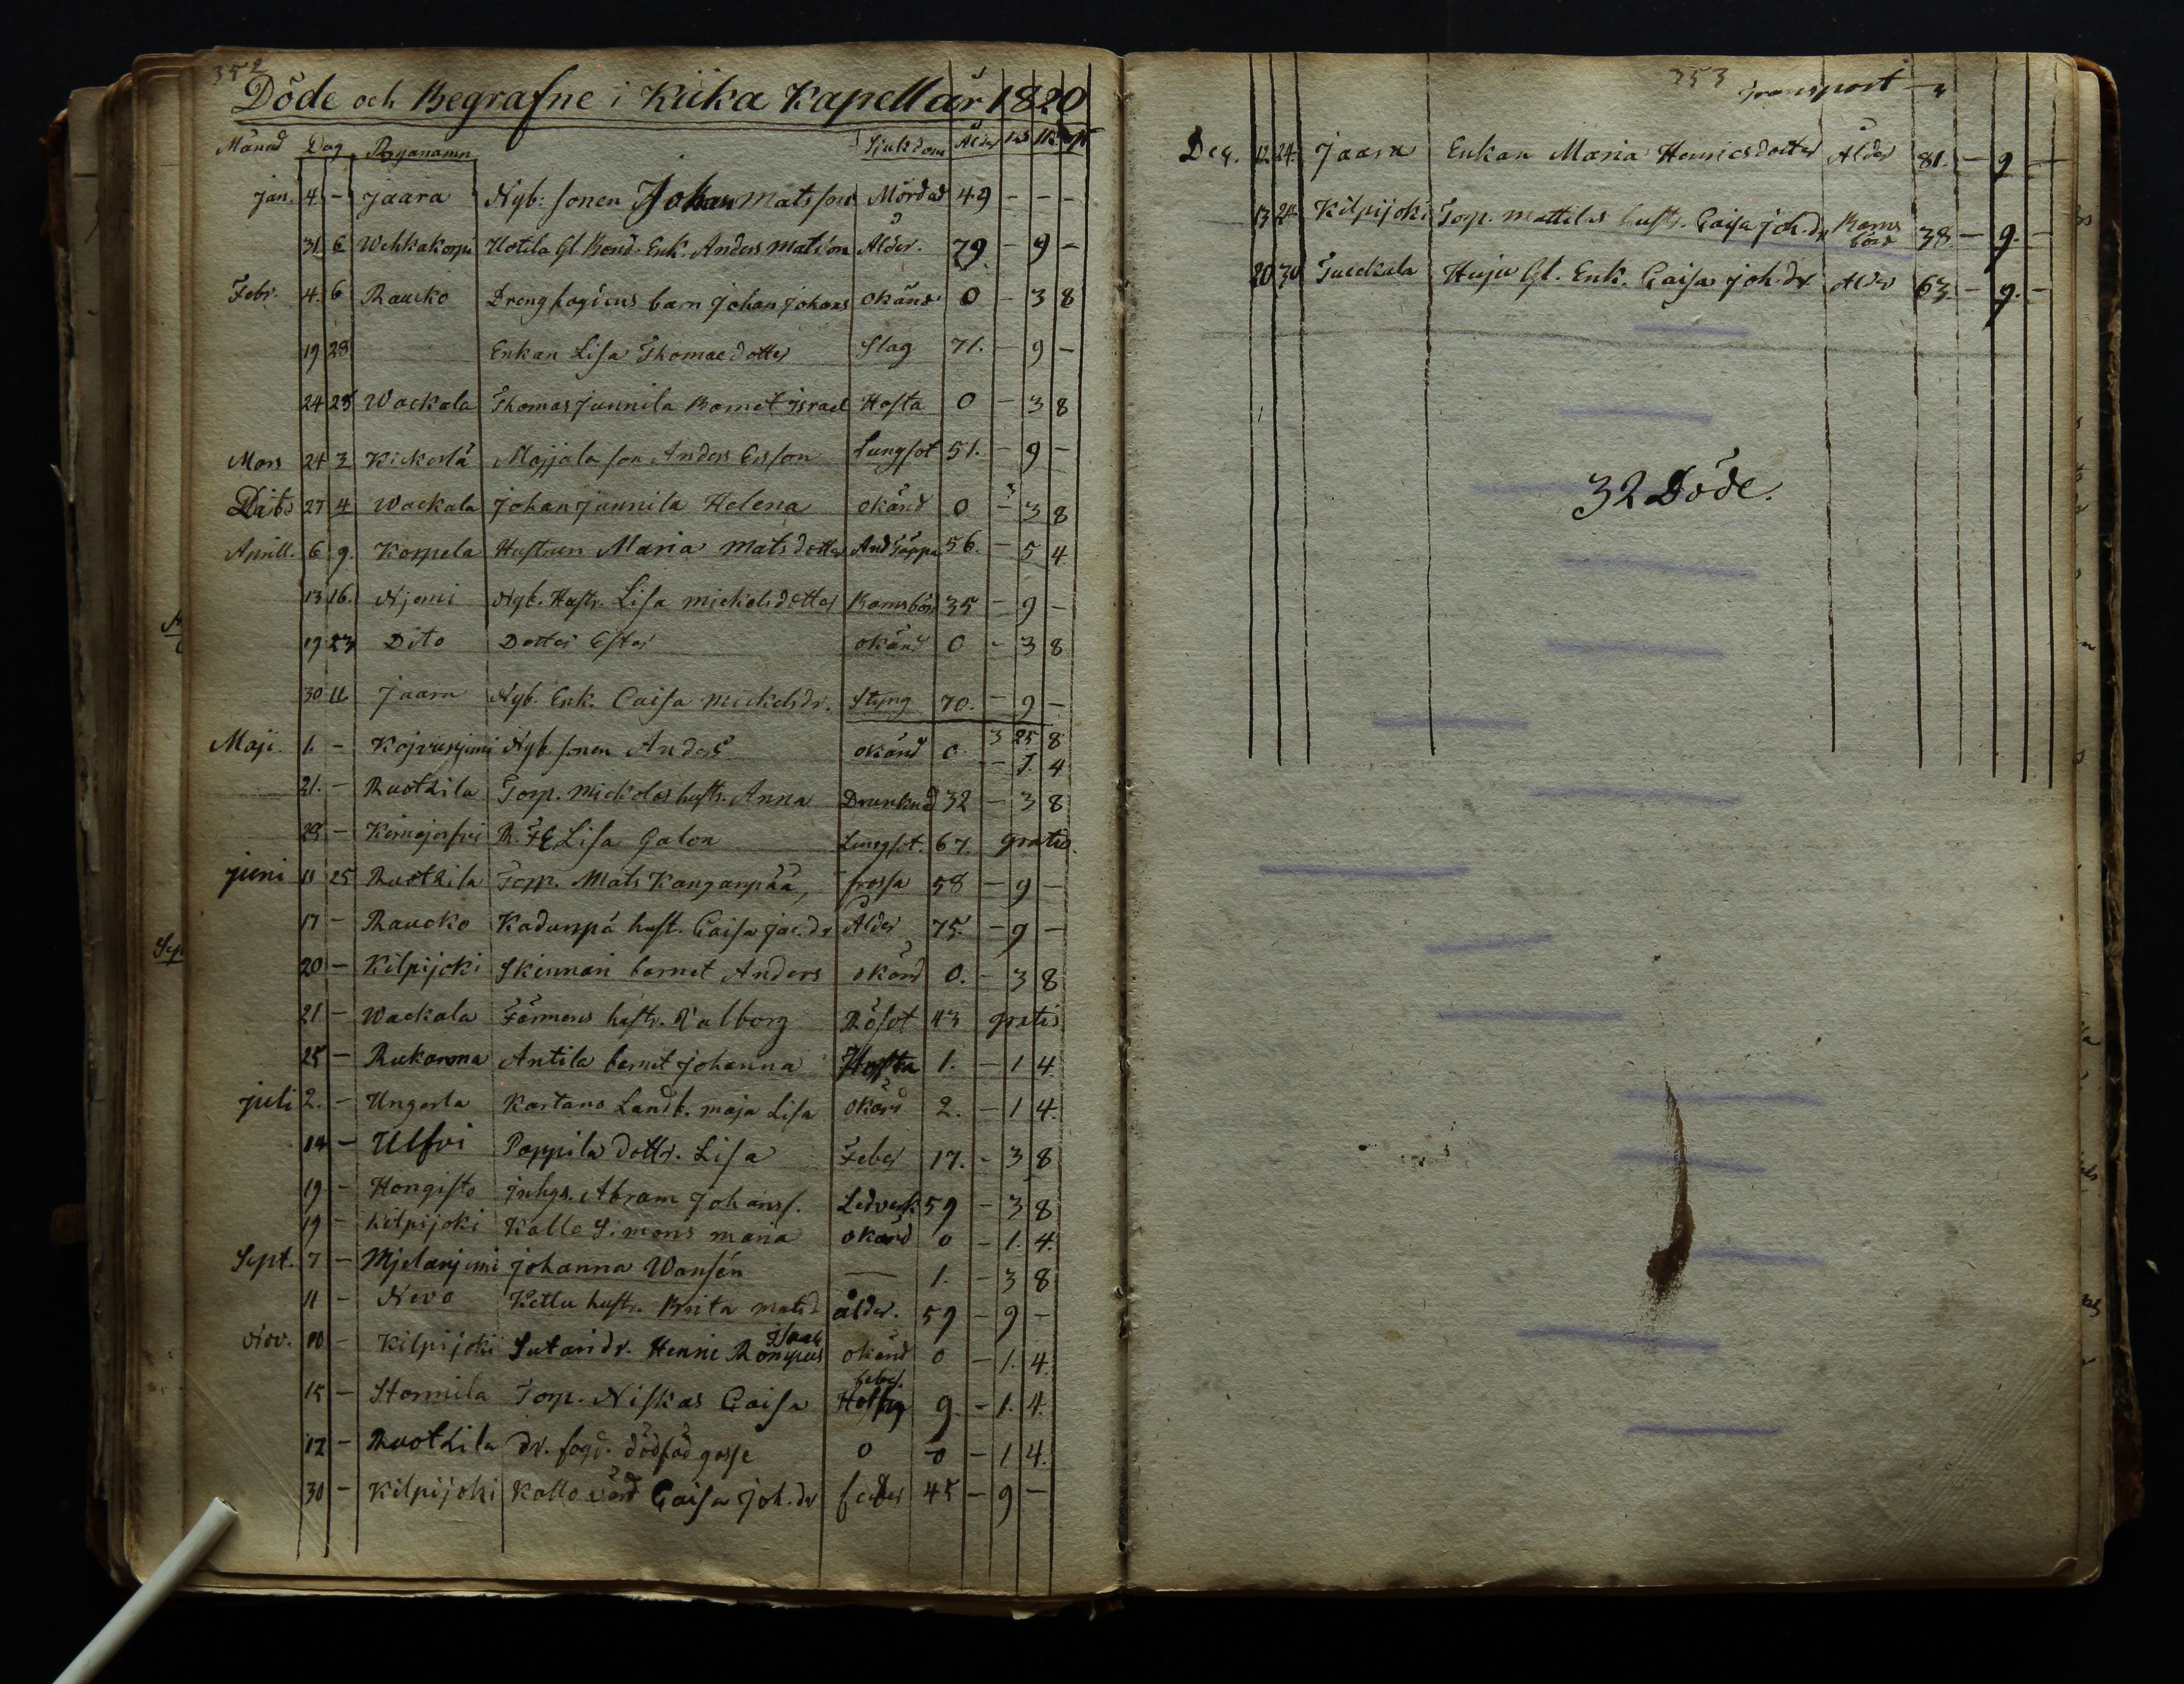 352
Döde och Begrafne i Kiika Kapell år 1820
Månad Dag Byanamn Sjukdom Ålder
Jan. 4. - Jaara Nyb: sonen Johan Matsson Mördad 49 - - -
31. 6 Wehkakorpi Uotila Gl. Bond. Enk. Anders Matsson Ålder. 79 - 9 -
Febr. 4. 6 Raucko Drengfogdens barn Johan Johans okänd 0 - 3 8
19 28 Enkan Lisa Thomaedotter Slag 71. - 9 -
24 28 Wackala Thomas Junnila Barnet Israel Hosta 0 - 3 8
Mars 24 3 Kickerlä Majjala son Anders Ersson Lungsot 51. - 9 -
Dito 27 4 Wackala Johan Junnila Helena okänd 0 - 3 8
Aprill. 6 9. Korpela Hustrun Maria Matsdotter Andtäppa 56. - 5 4
13 16. Njemi Nyb. Hustr. Lisa Mickelsdotter Barnsbörd 35 - 9 -
19 23 Dito Dotter Ester okänd 0 - 3 8
30 11 Jaara Nyb. Enk. Caisa Mickelsdr. Styng 70. - 9 -
3 25 8
Maji. 1. - Kojvunjemi Nyb sonen Anders okänd 0. - 1. 4
21. - Ruotsila Torp. Mickolas hustr. Anna Drunknad 32 - 3 8
28 - R. Lisa Galon Lungsot. 67. gratis.
Juni 11 25 Ruotsila Torp. Mats Kanganpää, frossa 58 - 9 -
17 - Raucko Kadunpä hust. Caisa Jac.dr Ålder 75. - 9 -
20 - Kilpijoki Skinnari barnet Anders okänd 0. - 3 8
21 - Wackala Färmens hustr. Valborg Rösot 43 gratis
25 - Antila barnet Johanna Hosta 1. - 1 4
Juli 2. - Ungerla Kartano Landb. Maja Lisa okänd 2. - 1 4.
14 - Ulfvi Pappila dottr. Lisa Feber 17. - 3 8
19 - Hongisto Inhys. Abram Johanss. Ledverk 59 - 3 8
19 - Kilpijoki Kallo Simons Maria okänd 0 - 1. 4.
Sept. 7 - Mjelanjemi Johanna Wansén — 1. - 3 8
11 - Nevo Kettu hustr. Brita Matsd ålder. 59 - 9 -
Nov. 10 - Kilpijoki Sutari dr. Henric Isaac okänd 0 - 1. 4.
15 - Stormila Torp. Niskas Caisa feber. 9. - 1. 4.
17 - Ruotsila dr. fogd. dödföd gosse 0 0 - 1 4.
30 - Kilpijoki Kallo värd Caisa Joh.dr feber 45 - 9 -
353 Transport -
Dec. 12. 24. Jaara Enkan Maria Henricsdotter Ålder 81. - 9 -
13 24. Kilpijoki Torp. Mattilas hustr. Caisa Joh.dr Barns börd 38 - 9. -
20 30 Tuickala Huju Gl. Enk. Caisa Joh.dr Ålder 63. - 9. -
32 Döde.